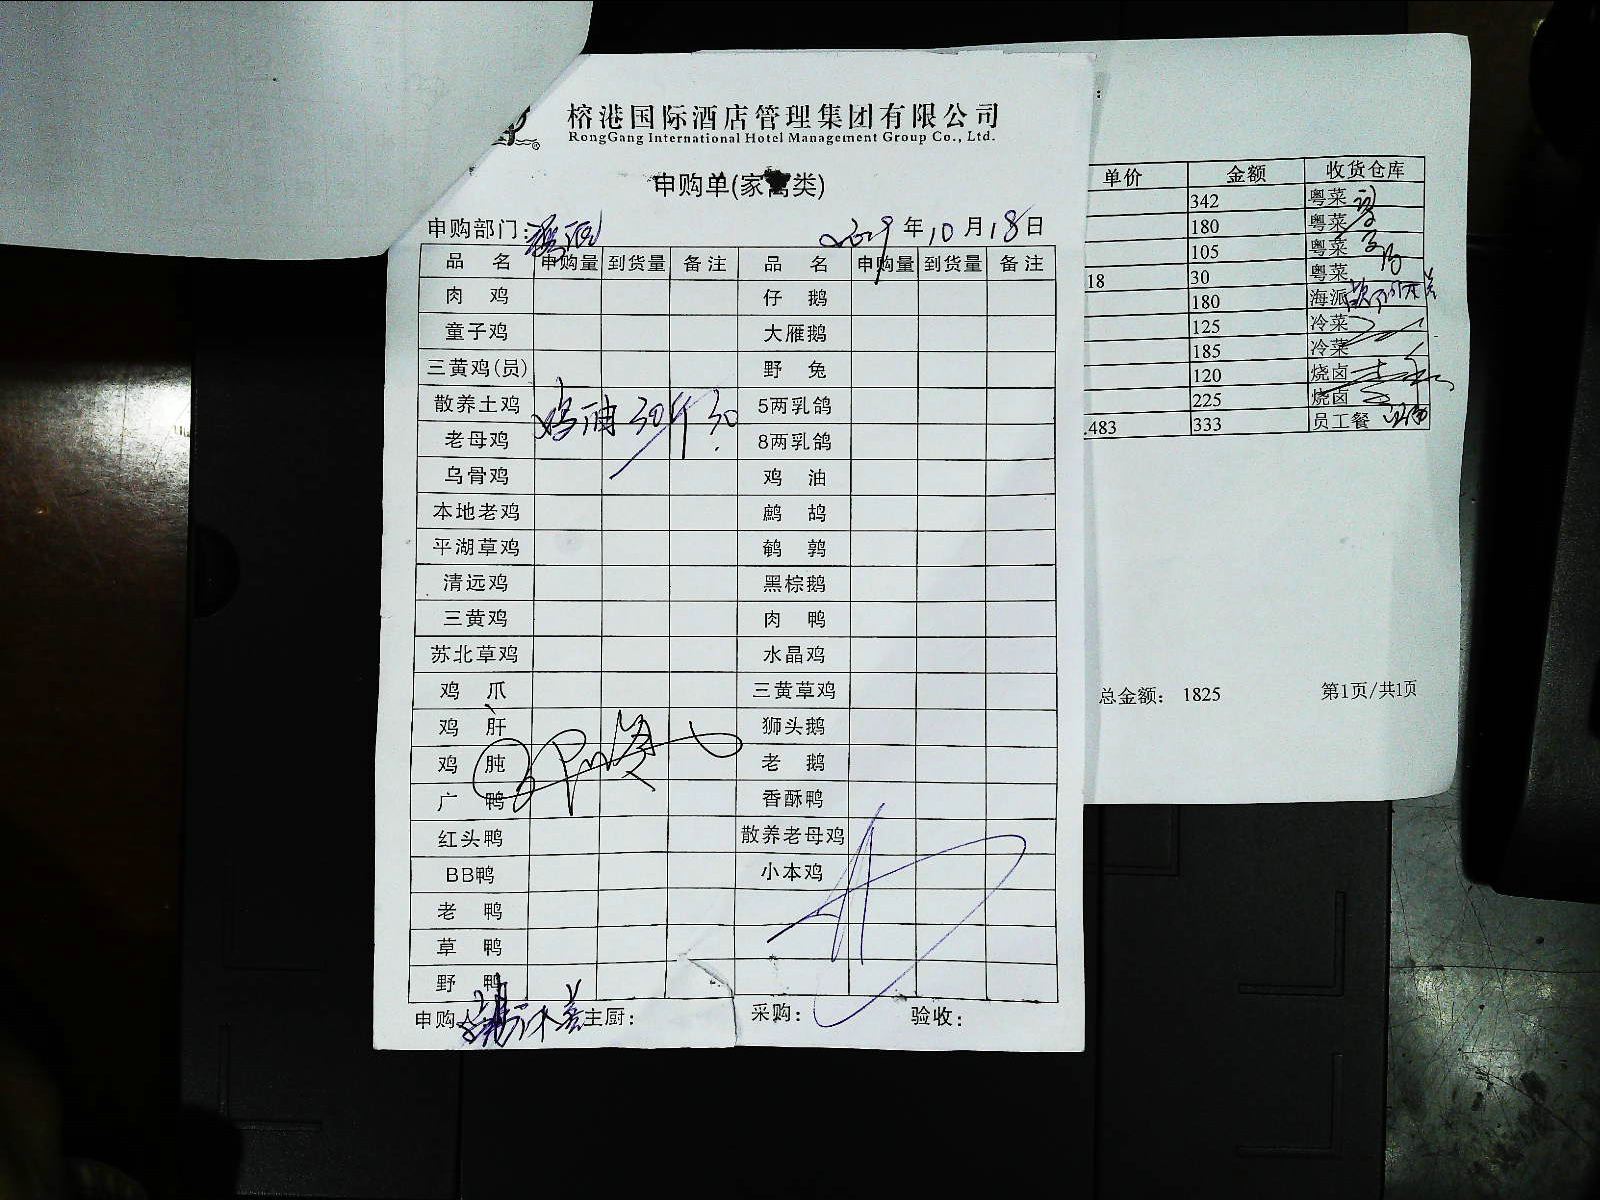 榕港国际酒店管理集团有限公司
RongGang International Hotel Management Group Co., Ltd.
申购单(家禽类)
申购部门: 2019年10月18日
品名 申购量 到货量 备注 品名 申购量 到货量 备注
肉鸡 仔鹅
童子鸡 大雁鹅
三黄鸡(员) 野兔
散养土鸡 鸡油 30斤 30 5两乳鸽
老母鸡 8两乳鸽
乌骨鸡 鸡油
本地老鸡 鹧鸪
平湖草鸡 鹌鹑
清远鸡 黑棕鹅
三黄鸡 肉鸭
苏北草鸡 水晶鸡
鸡爪 三黄草鸡
鸡肝 狮头鹅
鸡肫 老鹅
广鸭 香酥鸭
红头鸭 散养老母鸡
BB鸭 小本鸡
老鸭
草鸭
野鸭
申购人 主厨: 采购: 验收:
单价 金额 收货仓库
342 粤菜
180 粤菜
105 粤菜
18 30 粤菜
180 海派
125 冷菜
185 冷菜
120 烧卤
225 烧卤
.483 333 员工餐
总金额: 1825 第1页/共1页